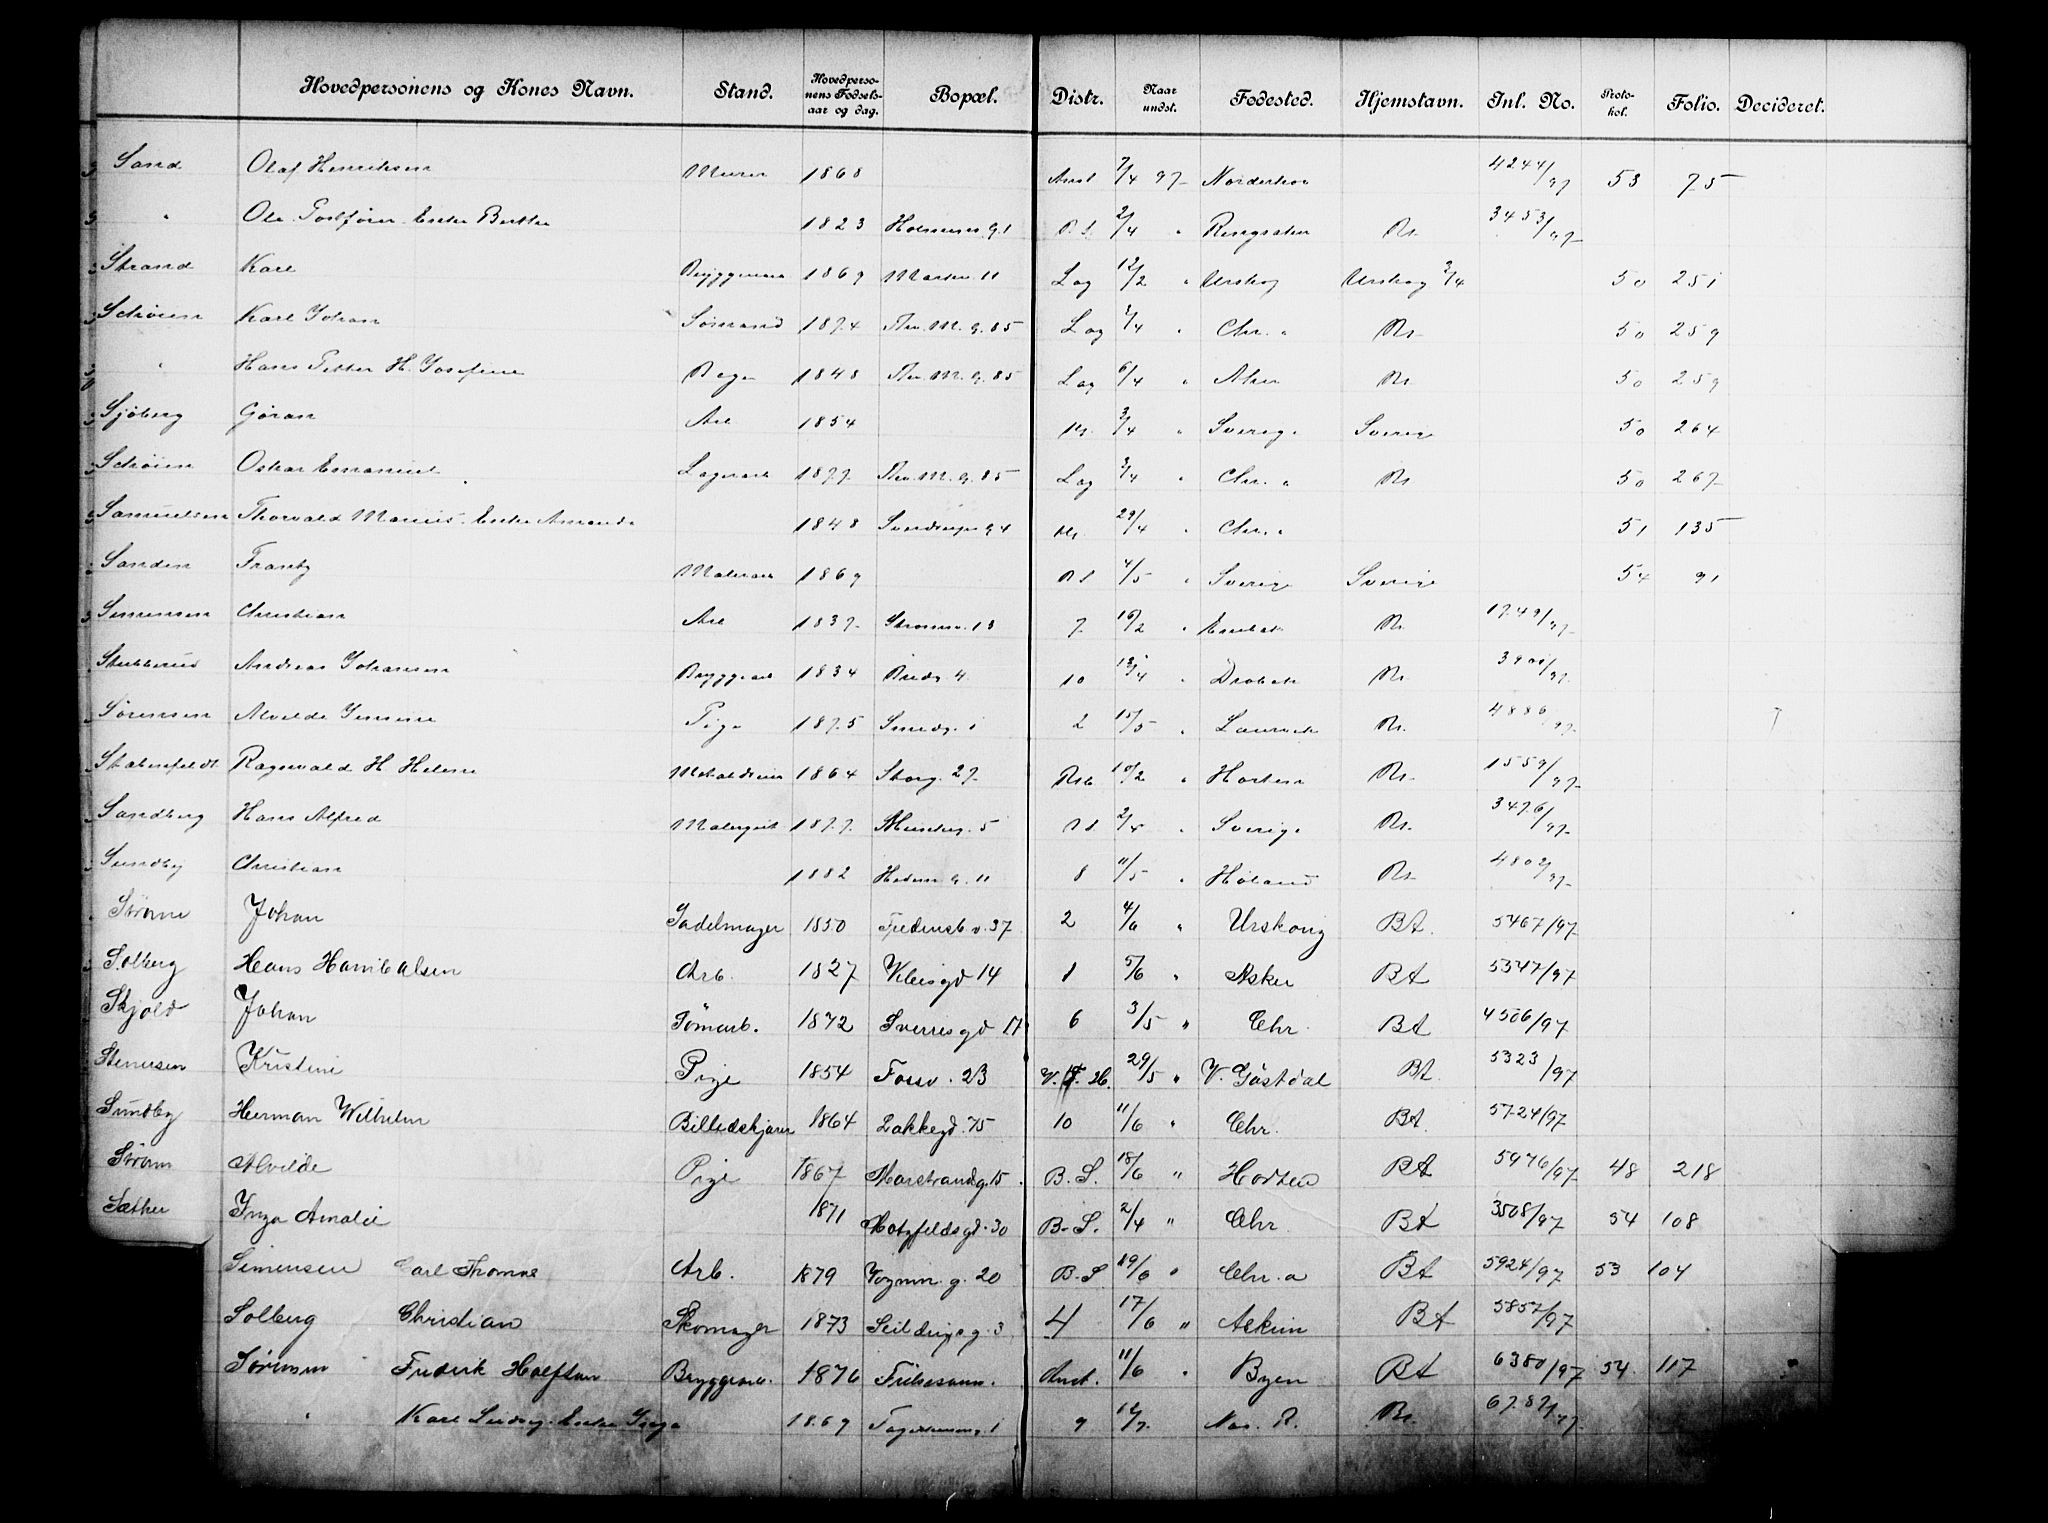 Hovedpersonens og Kones Navn. Stand. Hovedperso-nens Fødsels-aar og dag. Bopæl. Distr. Naar undst. Fødested. Hjemstavn. Inl. No. Proto-kol. Folio. Decideret.
Sand Olaf Henriksen Murer 1868 Anst 7/4 97 Norderhov 4244/97 53 75
" Ole Enke Berthe 1823 Holmens g. 1 B.S. 2/4 " Ringsaker Bt. 3453/97
Strand Karl Bryggearb 1869 Markv. 11 Lag 12/2 " Urskog Urskog 3/4 50 251
Schøien Karl Johan Sømand 1874 Thv. M. g. 85 Lag 1/4 " Chr. a Bt. 50 259
" Hans Petter H. Josefine 1848 Thv. M. g. 85 Lag 6/4 " Aker Bt. 50 259
Sjøberg Gøran Arb 1854 3/4 " Sverige Sverige 50 264
Schøien Oskar Emanuel Lagerarb 1877 Thv. M. g. 85 Lag 3/4 " Chr. a Bt. 50 267
Samuelsen Thorvald Marius Enke Amanda 1848 Sverdrups g 4 29/4 " Chr. a 51 135
Sanden Frantz Malerarb 1869 B S 4/5 " Sverige Sverige 54 91
Simensen Christian Arb 1837 Strømsv. 13 7 16/2 " Enebak Bt. 1749/97
Stubberud Andreas Johansen Bryggearb 1834 Bredg 4 10 13/4 " Drøbak Bt. 3901/97
Sørensen Alvilde Jensine Pige 1875 Smedg. 1 2 15/5 " Laurvik Bt. 4886/97
Stabenfeldt Ragnvald H Helene 1864 Storg. 27 10/2 " Horten Bt. 1559/97
Sandberg Hans Alfred Malersvend 1877 Munkeg. 5 B S 2/4 " Sverige Bt. 3476/97
Sundby Christian 1882 Hedem g. 11 8 11/5 " Høland Bt. 4802/97
Strøm Johan Sadelmager 1850 Fredensb. v. 37 2 4/6 " Urskoug Bt. 5467/97
Solberg Hans Hanibalsen Arb. 1827 14 1 5/6 " Asker Bt 5347/97
Skjold Johan Tømarb. 1872 Sverresgd 17 6 3/5 " Chr. Bt 4506/97
Stenersen Kristine Pige 1854 Fossv. 23 V. F. H. 29/5 " V. Gástdal Bt. 5323/97
Sundby Herman Wilhelm Billedskjærer 1864 Lakkegd. 75 10 11/6 " Chr. Bt. 5724/97
Strøm Alvilde Pige 1867 Marstrandg. 15 B. S. 18/6 " Horten Bt 5976/97 48 218
Sæther Inga Amalie 1871 Hotzfeldsgd. 30 B. S. 2/4 " Chr. Bt 3508/97 54 108
Simensen Carl Thomas Arb. 1879 Vognm. g. 20 B. S 19/6 " Chr. a Bt 5924/97 53 104
Solberg Christian Skomager 1873 Seildugsg. 3 4 17/6 " Askim Bt 5857/97
Sørensen Fredrik Halftan Bryggearb. 1876 Anst. 11/6 " Byen Bt 6380/97 54 117
" Karl Ludvig Enke Inga 1869 9 12/7 " Nes. R. Bt. 6782/97